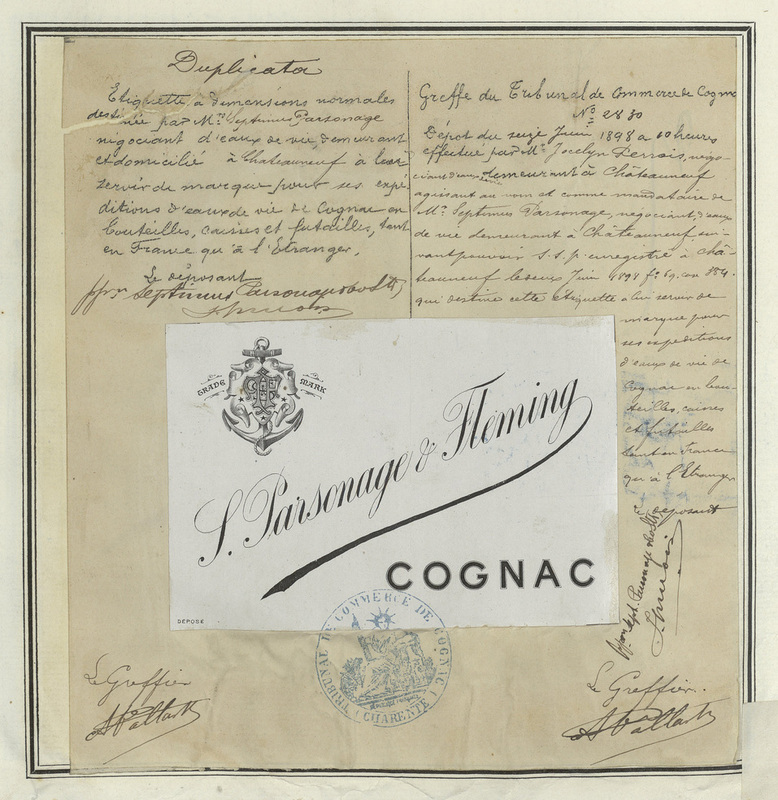 Duplicata
Etiquette à dimensions normales
destinée par Mr. Septimus Parsonage
négociant d'eaux de vie, demeurant
et domicilié à Châteauneuf à leur
servir de marque pour ses expé-
ditions d'eaux de vie de Cognac en
bouteilles, caisses et futailles, tant
en France qu'à l'Etranger.
Le déposant
Septimus Parsonage
Greffe du Tribunal de Commerce de Cognac
No 2830
Dépôt du seize Juin 1898 à 10 heures
effectué par Mr. Jocelyn négo-
ciant d'eaux de vie demeurant à Châteauneuf
agissant au nom et comme mandataire de
Mr. Septimus Parsonage, négociant d'eaux
de vie demeurant à Châteauneuf sui-
vant pouvoir s.s.p. enregistré à Châ-
teauneuf le deux Juin 1898
qui destine cette étiquette à lui servir de
marque pour
ses expéditions
d'eaux de vie de
Cognac en bou-
teilles, caisses
et futailles
tant en France
qu'à l'Etranger
Le déposant
Sept. Parsonage
TRADE MARK
S. Parsonage & Fleming
COGNAC
DÉPOSÉ
TRIBUNAL DE COMMERCE DE COGNAC (CHARENTE)
Le Greffier
Le Greffier.